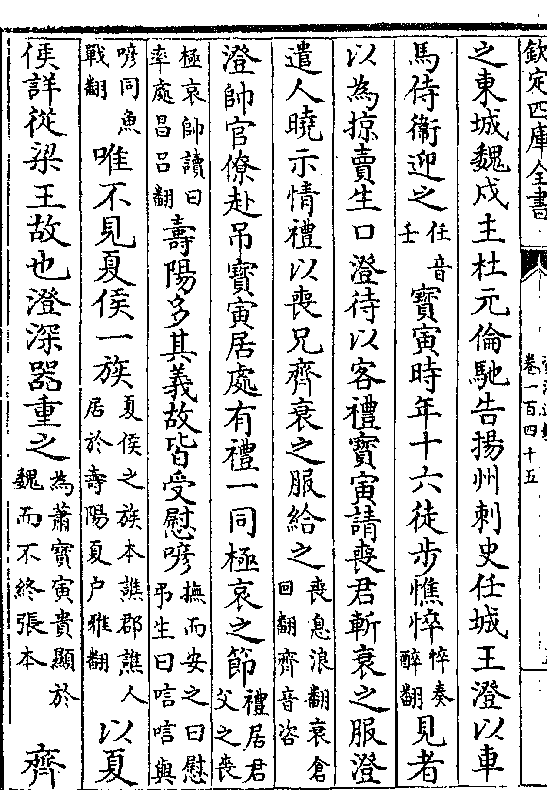 欽定四庫全書
卷一百四十五
之東城魏戍主杜元倫馳告揚州刺史任城王澄以車
馬侍衞迎之任音壬寳寅時年十六徒步憔悴悴秦醉翻見者
以為掠賣生口澄待以客禮寳寅請喪君斬衰之服澄
遣人曉示情禮以喪兄齊衰之服給之喪息浪翻衰倉回翻齊音咨
澄帥官僚赴弔寳寅居處有禮一同極哀之節禮居君父之喪
極哀帥讀曰率處昌呂翻壽陽多其義故皆受慰唁撫而安之曰慰弔生曰唁唁與
喭同魚戰翻唯不見夏侯一族夏侯之族本譙郡譙人居於壽陽夏户雅翻以夏
侯詳從梁王故也澄深器重之為蕭寳寅貴顯於魏而不終張本齊